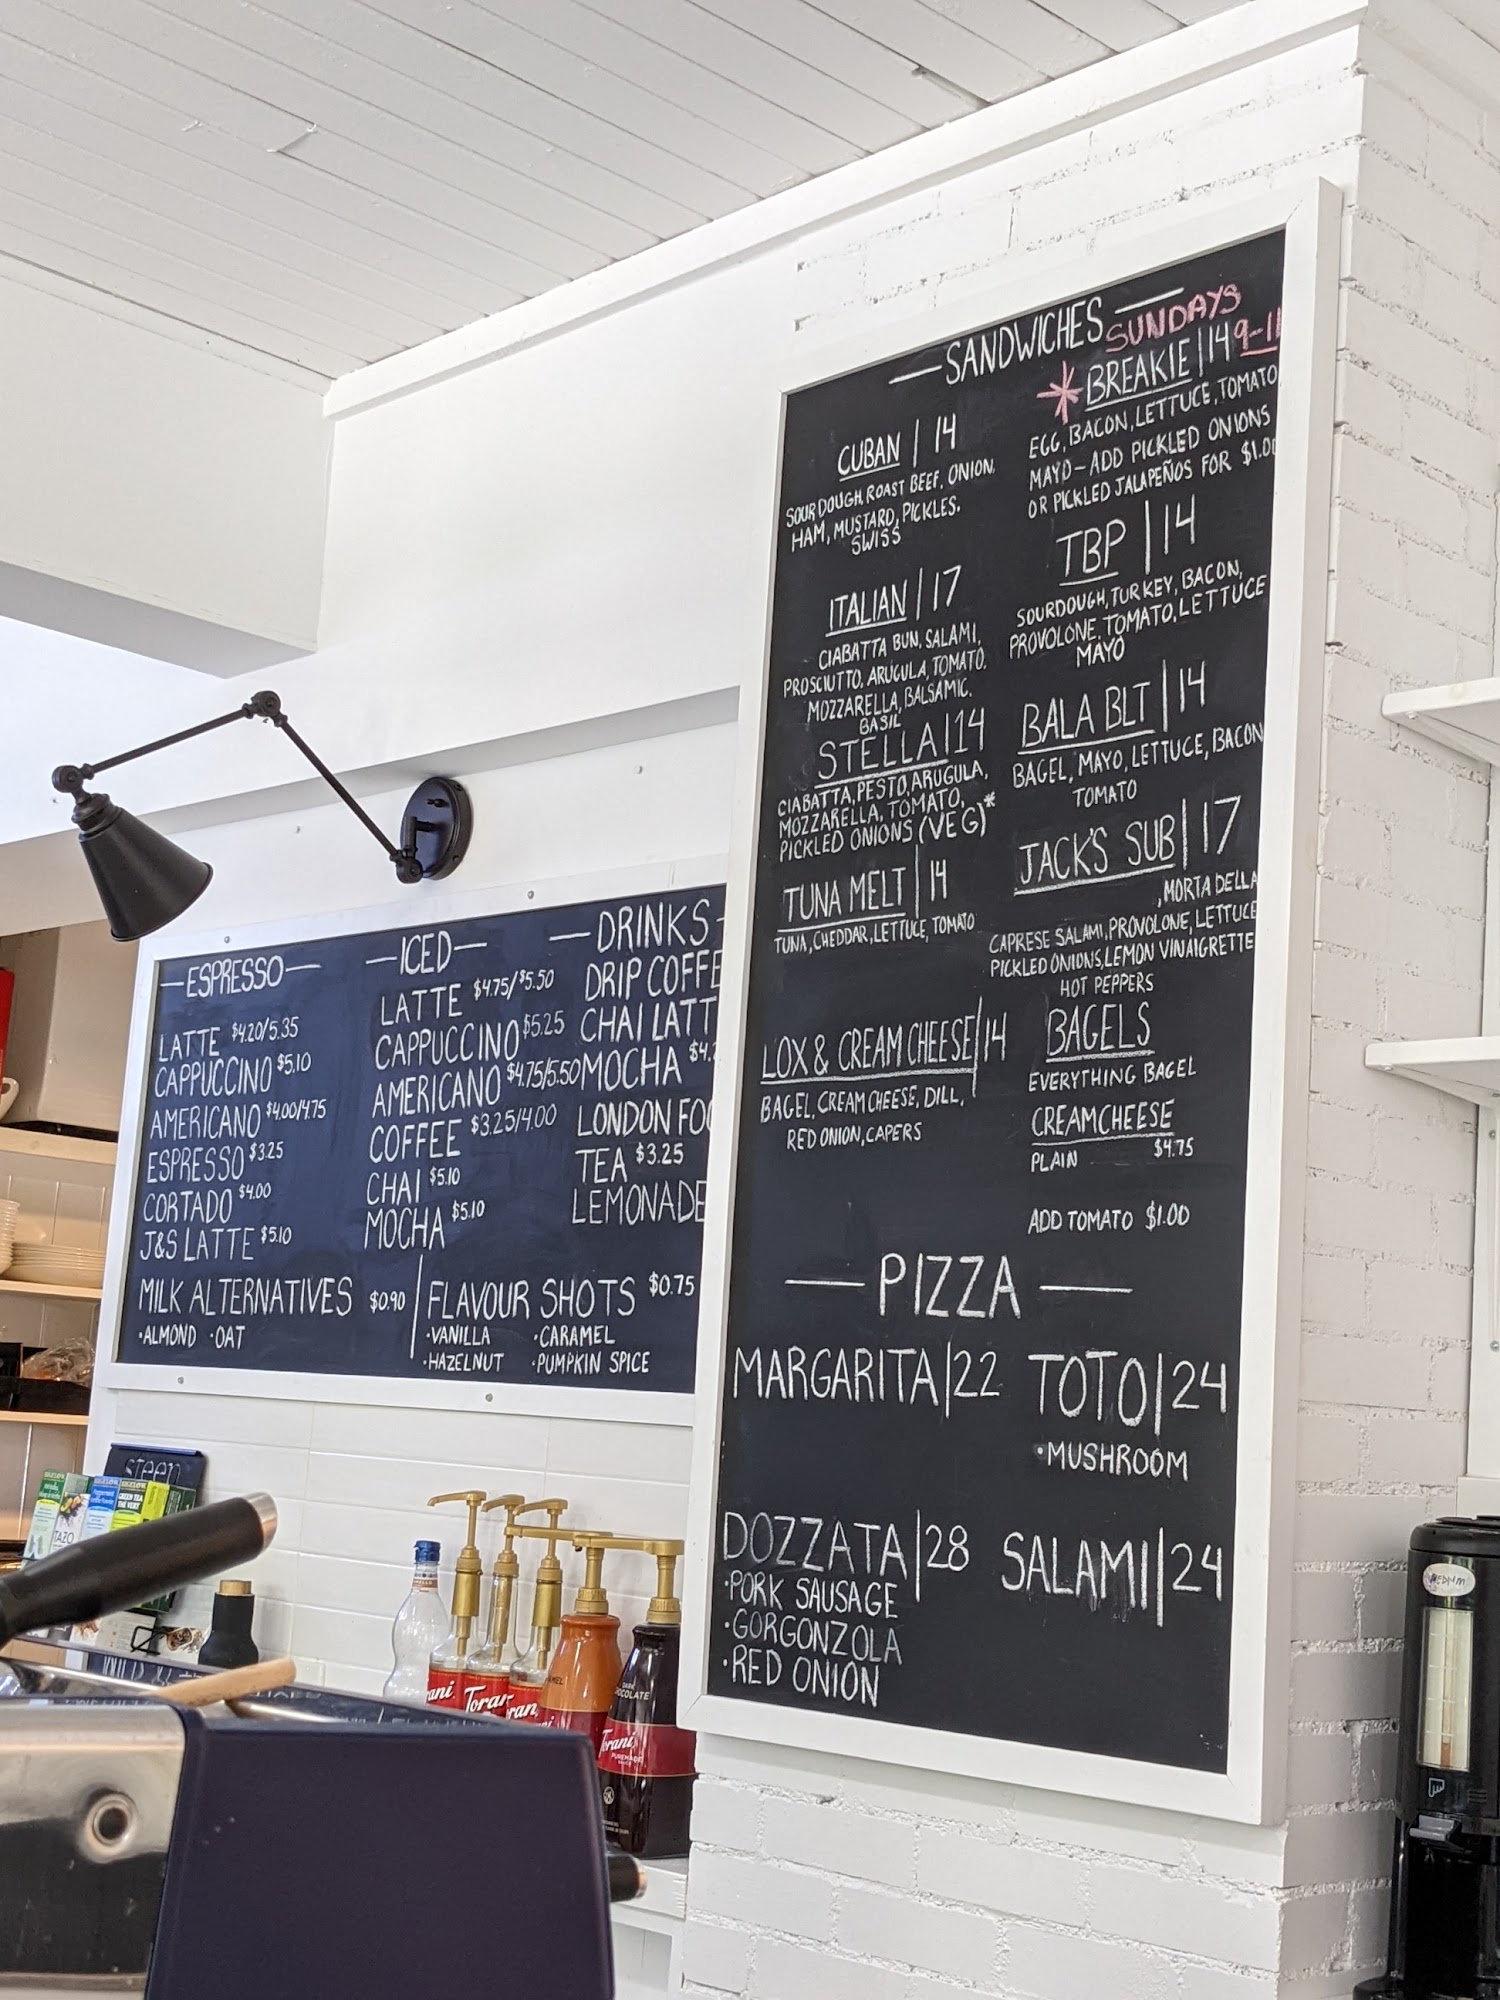 — SANDWICHES —
SUNDAYS
9-11
* BREAKIE | 14
EGG, BACON, LETTUCE, TOMATO
MAYO - ADD PICKLED ONIONS
OR PICKLED JALAPEÑOS FOR $1.00
CUBAN | 14
SOURDOUGH, ROAST BEEF, ONION,
HAM, MUSTARD, PICKLES.
SWISS
TBP | 14
SOURDOUGH, TURKEY, BACON,
PROVOLONE, TOMATO, LETTUCE
MAYO
ITALIAN | 17
CIABATTA BUN, SALAMI,
PROSCIUTTO, ARUGULA, TOMATO,
MOZZARELLA, BALSAMIC.
BASIL
BALA BLT | 14
BAGEL, MAYO, LETTUCE, BACON
TOMATO
STELLA | 14
CIABATTA, PESTO, ARUGULA,
MOZZARELLA, TOMATO,
PICKLED ONIONS (VEG)*
JACK'S SUB | 17
, MORTADELLA
CAPRESE SALAMI, PROVOLONE, LETTUCE
PICKLED ONIONS, LEMON VINAIGRETTE
HOT PEPPERS
TUNA MELT | 14
TUNA, CHEDDAR, LETTUCE, TOMATO
LOX & CREAM CHEESE | 14
BAGEL, CREAM CHEESE, DILL,
RED ONION, CAPERS
BAGELS
EVERYTHING BAGEL
CREAMCHEESE
PLAIN $4.75
ADD TOMATO $1.00
— PIZZA —
MARGARITA | 22
TOTO | 24
·MUSHROOM
DOZZATA | 28
·PORK SAUSAGE
·GORGONZOLA
·RED ONION
SALAMI | 24
— ESPRESSO —
LATTE $4.20/5.35
CAPPUCCINO $5.10
AMERICANO $4.00/4.75
ESPRESSO $3.25
CORTADO $4.00
J&S LATTE $5.10
— ICED —
LATTE $4.75/$5.50
CAPPUCCINO $5.25
AMERICANO $4.75/5.50
COFFEE $3.25/4.00
CHAI $5.10
MOCHA $5.10
— DRINKS -
DRIP COFFE
CHAI LATT
MOCHA $4.
LONDON FO
TEA $3.25
LEMONADE
MILK ALTERNATIVES $0.90
·ALMOND ·OAT
FLAVOUR SHOTS $0.75
·VANILLA ·CARAMEL
·HAZELNUT ·PUMPKIN SPICE
steep
TAZO
GREEN TEA
Torani
DARK
CHOCOLATE
Torani
PUREMADE
MEDIUM